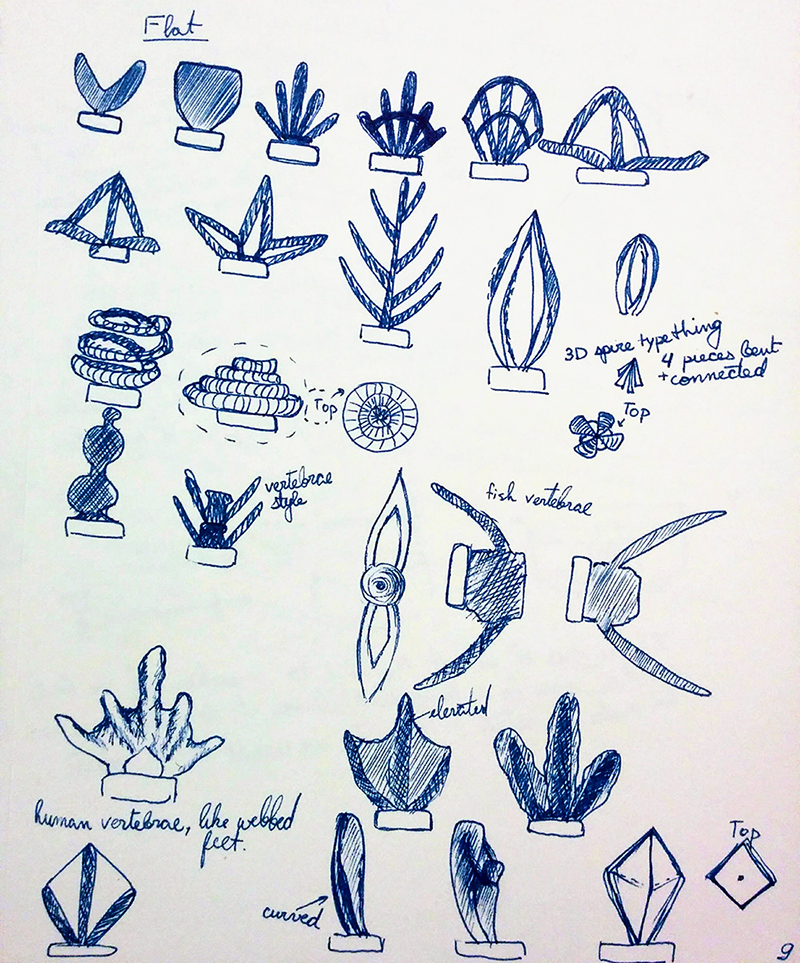 Flat
3D spire type thing
4 pieces bent
+ connected
Top
Top
vertebrae
style
fish vertebrae
elevated
human vertebrae, like webbed
feet.
Top
curved
9